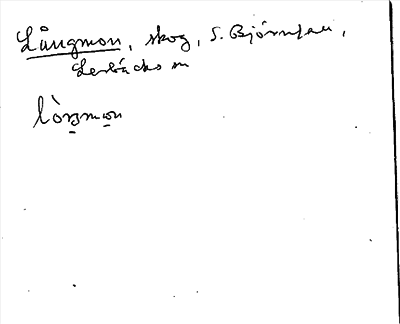 Långmon, skog, S. Björnfall,
Lerbäcks sn
lò̀ŋmon